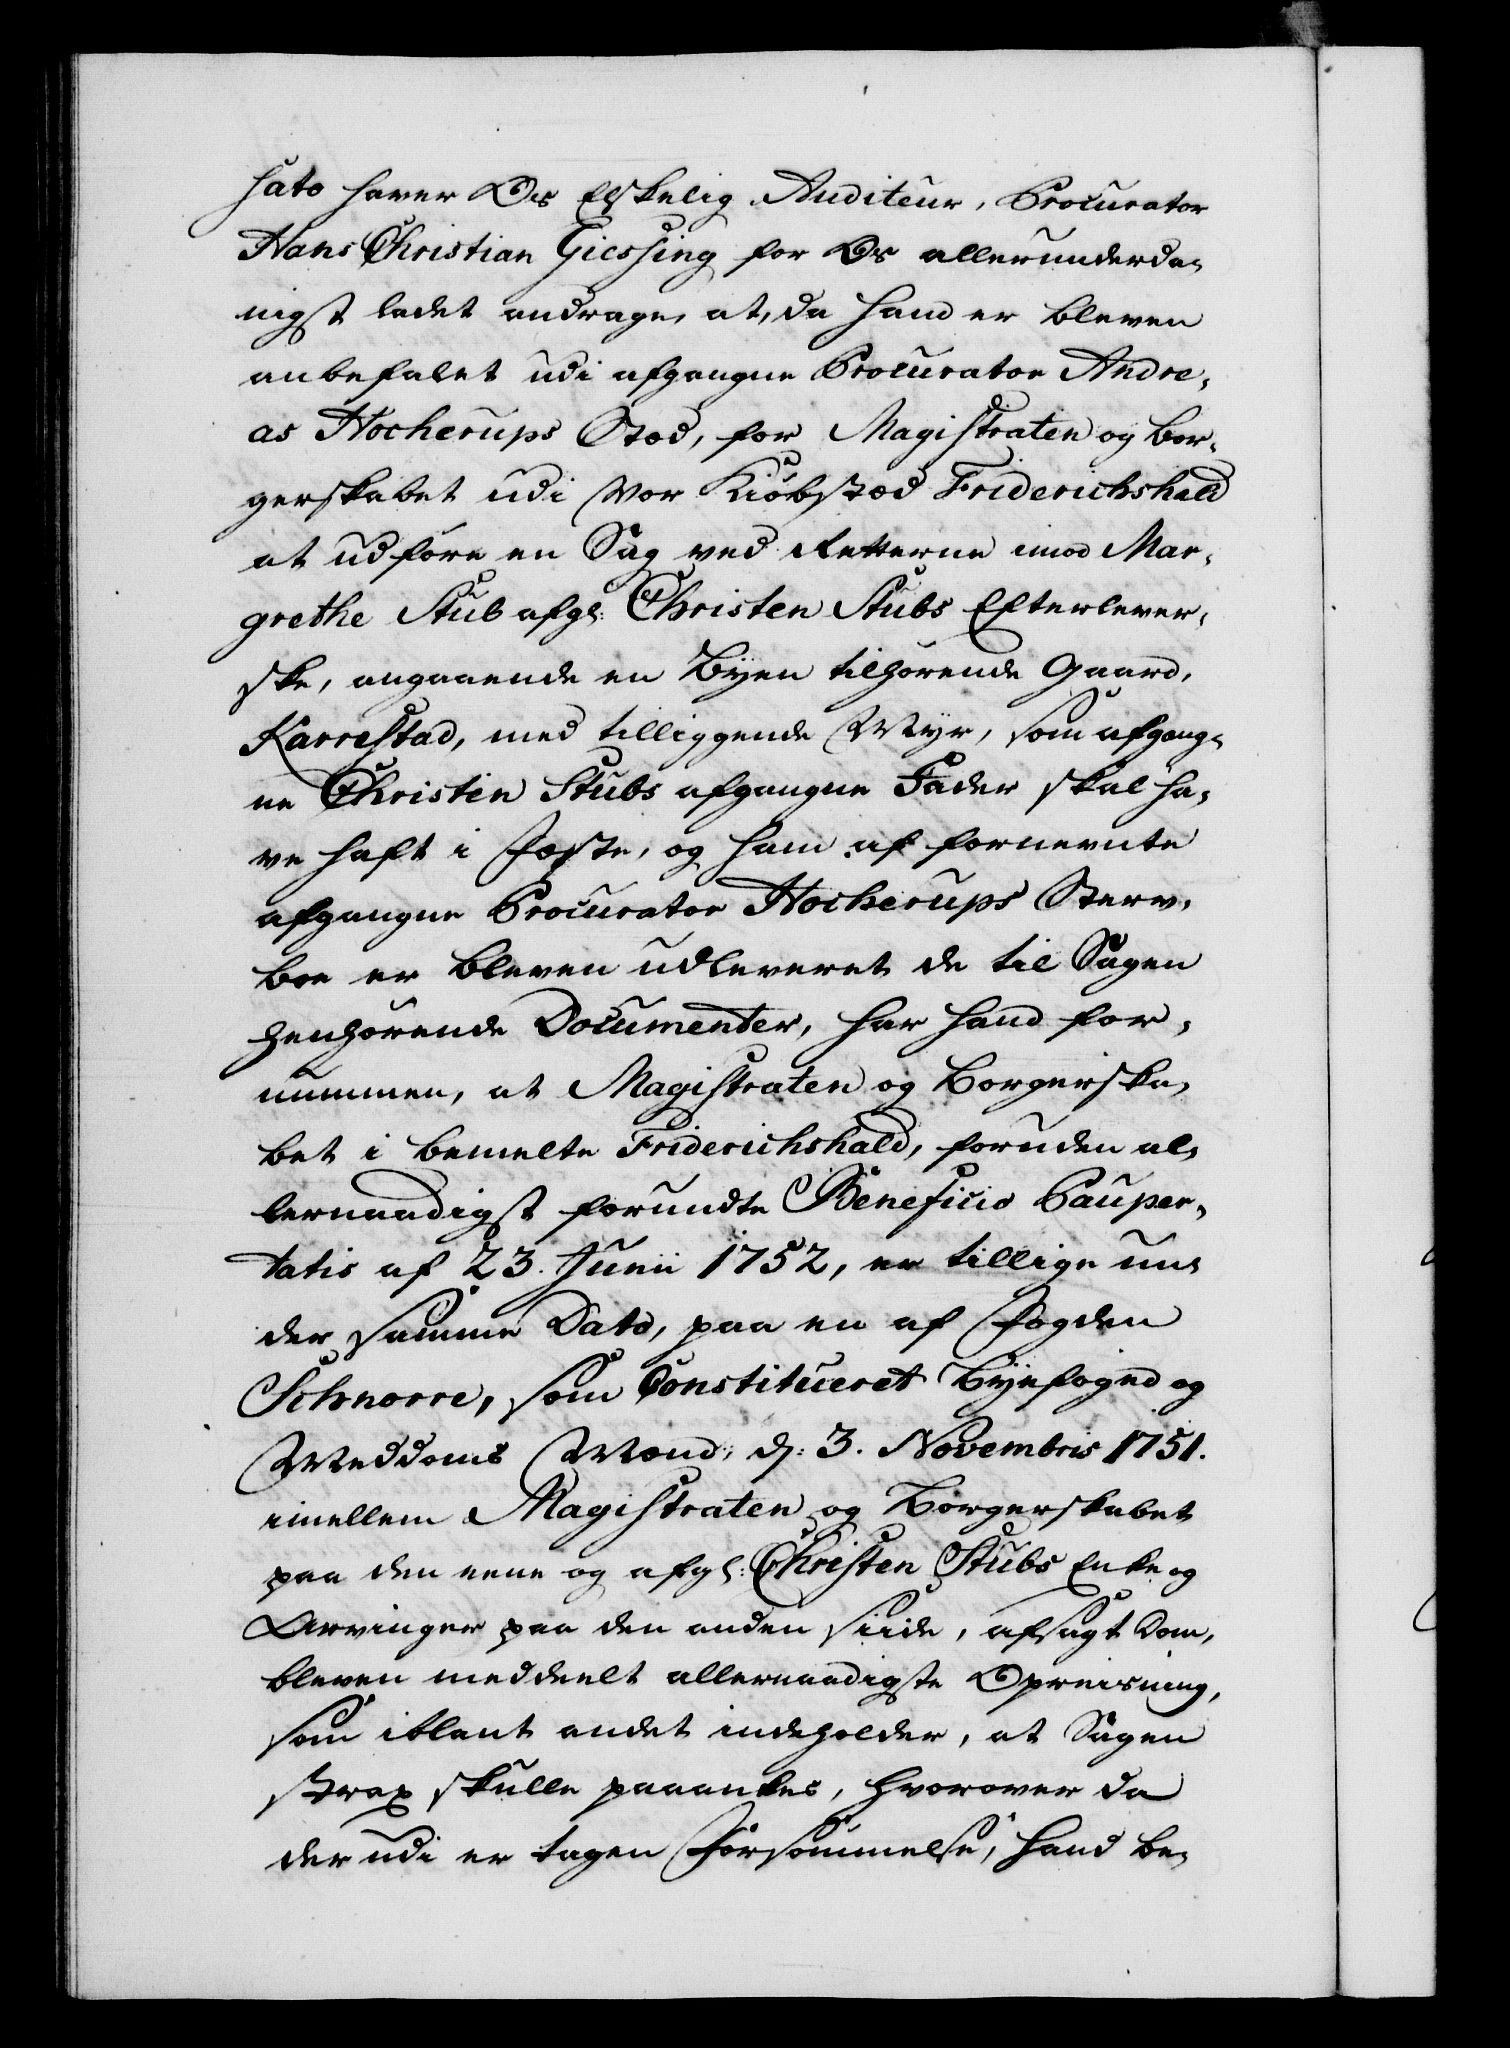 hato haver Os Elskelig Auditeur, Procurator
Hans Christian Giessing for Os allerunderda-
nigst ladet andrage, at, da hand er bleven
anbefalet udi afgangne Procurator Andre-
as Hocherups Stæd, for Magistraten og bor-
gerskabet udi Vor Kiöbstæd Friderichshald
at udföre en Sag ved Retterne imod Mar-
grethe Stub afgl: Christen Stubs Efterlever-
ske, angaaende en Byen tilhörende Gaard,
Karrestad, med tilliggende Myr, som afgang-
ne Christen Stubs afgangne Fader skal ha-
ve haft i Fæste, og ham af fornevnte
afgangne Procurator Hocherups Sterv-
boe er bleven udleveret de til Sagen
henhörende Documenter, har hand for-
nummen, at Magistraten og Borgerska-
bet i bemelte Friderichshald, foruden al-
lernaadigst forundte Beneficio Pauper-
tatis af 23. Junii 1752, er tillige un-
der samme Dato, paa en af Fogden
Schnorre, som Constitueret Byefoged og
Meddoms Mænd, d: 3. Novembris 1751.
imellem Magistraten og Borgerskabet
paa den eene og afgl: Christen Stubs Enke og
Arvinger paa den anden siide, afsagt Dom,
bleven meddeelt allernaadigste Opreisning,
som iblant andet indeholder, at Sagen
strax skulle paaankes, hvorover da
der udi er tagen Forsömmelse, hand be-